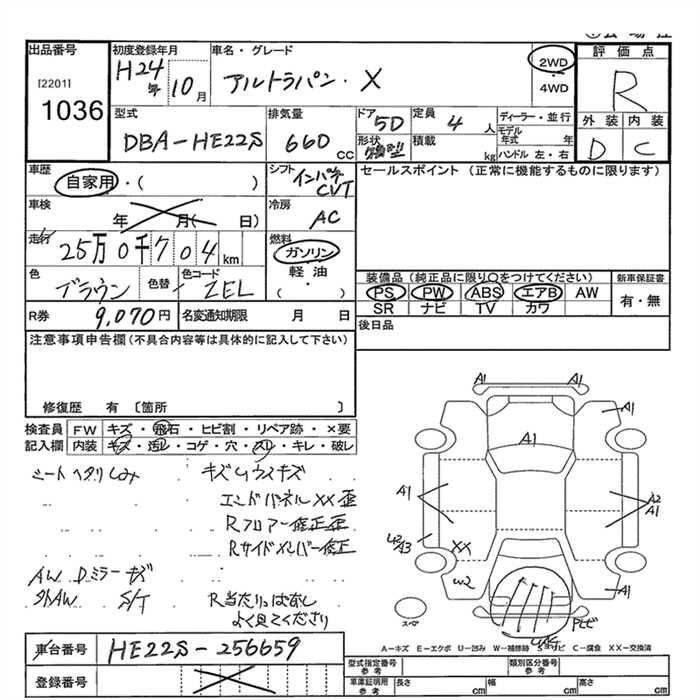 出品番号
[2201]
1036
初度登録年月
H24年 10月
車名・グレード
アルトラパン・X
2WD
4WD
評価点
R
外装 内装
D C
型式
DBA-HE22S
排気量
660 CC
ドア
5D
形状
定員
4 人
積載
kg
ディーラー・並行
モデル年式 年
ハンドル 左・右
車歴
自家用・( )
シフト
インパネ CVT
セールスポイント (正常に機能するものに限ります)
車検
年 月( 日)
冷房
AC
走行
25万0千704 km
燃料
ガソリン
軽油
( )
色
ブラウン
色替
色コード
ZEL
装備品 (純正品に限り○をつけてください)
PS PW ABS エアB AW
SR ナビ TV カワ
新車保証書
有・無
R券
9,070円
名変通知期限 月 日
後日品
注意事項申告欄 (不具合内容等は具体的に記入して下さい)
修復歴 有 〔箇所 〕
検査員記入欄
FW キズ・飛石・ヒビ割・リペア跡・×要
内装 キズ・汚レ・コゲ・穴・スレ・キレ・破レ
シートヘタリしみ
キズしウスキズ
エンドパネルXX歪
Rフロアー修正歪
Rサイドメンバー修正
AW Dミラーキズ
社外AW S/T
R当たりっぱなし
よく見てください
A1 A1
A1
A1
A1
A2
A1
U2
A3
XX
W2
A1
スペア
A-キズ E-エクボ U-凹み W-補修跡 S-サビ C-腐食 XX-交換済
車台番号
HE22S-256659
登録番号
型式指定番号 参考
類別区分番号 参考
車庫証明用 参考
長さ cm
幅 cm
高さ cm